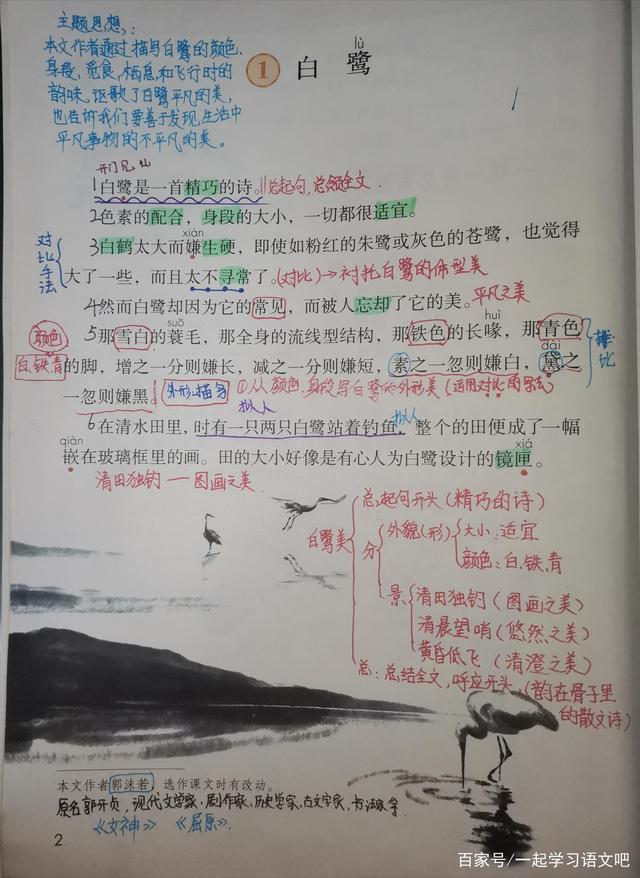 主题思想:
本文作者通过描写白鹭的颜色、
身段、觅食、栖息和飞行时的
韵味,讴歌了白鹭平凡的美,
也告诉我们要善于发现生活中
平凡事物的不平凡的美。
lù
1 白鹭
开门见山
1白鹭是一首精巧的诗。总起句,总领全文
2色素的配合,身段的大小,一切都很适宜。
xián
对比手法
3白鹤太大而嫌生硬,即使如粉红的朱鹭或灰色的苍鹭,也觉得
大了一些,而且太不寻常了。(对比)→衬托白鹭的体型美
4然而白鹭却因为它的常见,而被人忘却了它的美。平凡之美
suō huì
颜色
5那雪白的蓑毛,那全身的流线型结构,那铁色的长喙,那青色
排比
dài
白,铁,青
的脚,增之一分则嫌长,减之一分则嫌短,素之一忽则嫌白,黛之
一忽则嫌黑。外形描写 ①从颜色、身段写白鹭的外形美(运用对比的写法)
拟人 拟人
6在清水田里,时有一只两只白鹭站着钓鱼,整个的田便成了一幅
qiàn xiá
嵌在玻璃框里的画。田的大小好像是有心人为白鹭设计的镜匣。
清田独钓一图画之美
白鹭美
总,起句开头(精巧的诗)
分
外貌(形)
大小:适宜
颜色:白、铁、青
景
清田独钓(图画之美)
清晨望哨(悠然之美)
黄昏低飞(清澄之美)
总:总结全文,呼应开头,(韵在骨子里
的散文诗)
本文作者郭沫若,选作课文时有改动。
原名郭开贞,现代文学家、剧作家、历史学家、古文字家、书法家等
《女神》 《屈原》
2
百家号/一起学习语文吧